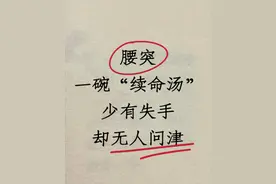 腰突
一碗“续命汤”
少有失手
却无人问津